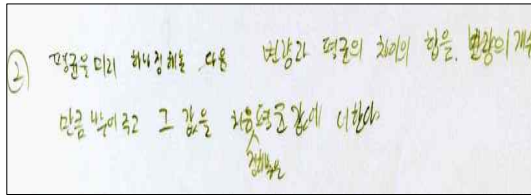 ② 평균을 미리 하나 정해논 다음 변량과 평균의 차이의 합을, 변량의 개수
만큼 나누어주고 그 값을 처음 평균값에 더한다
정해놓은